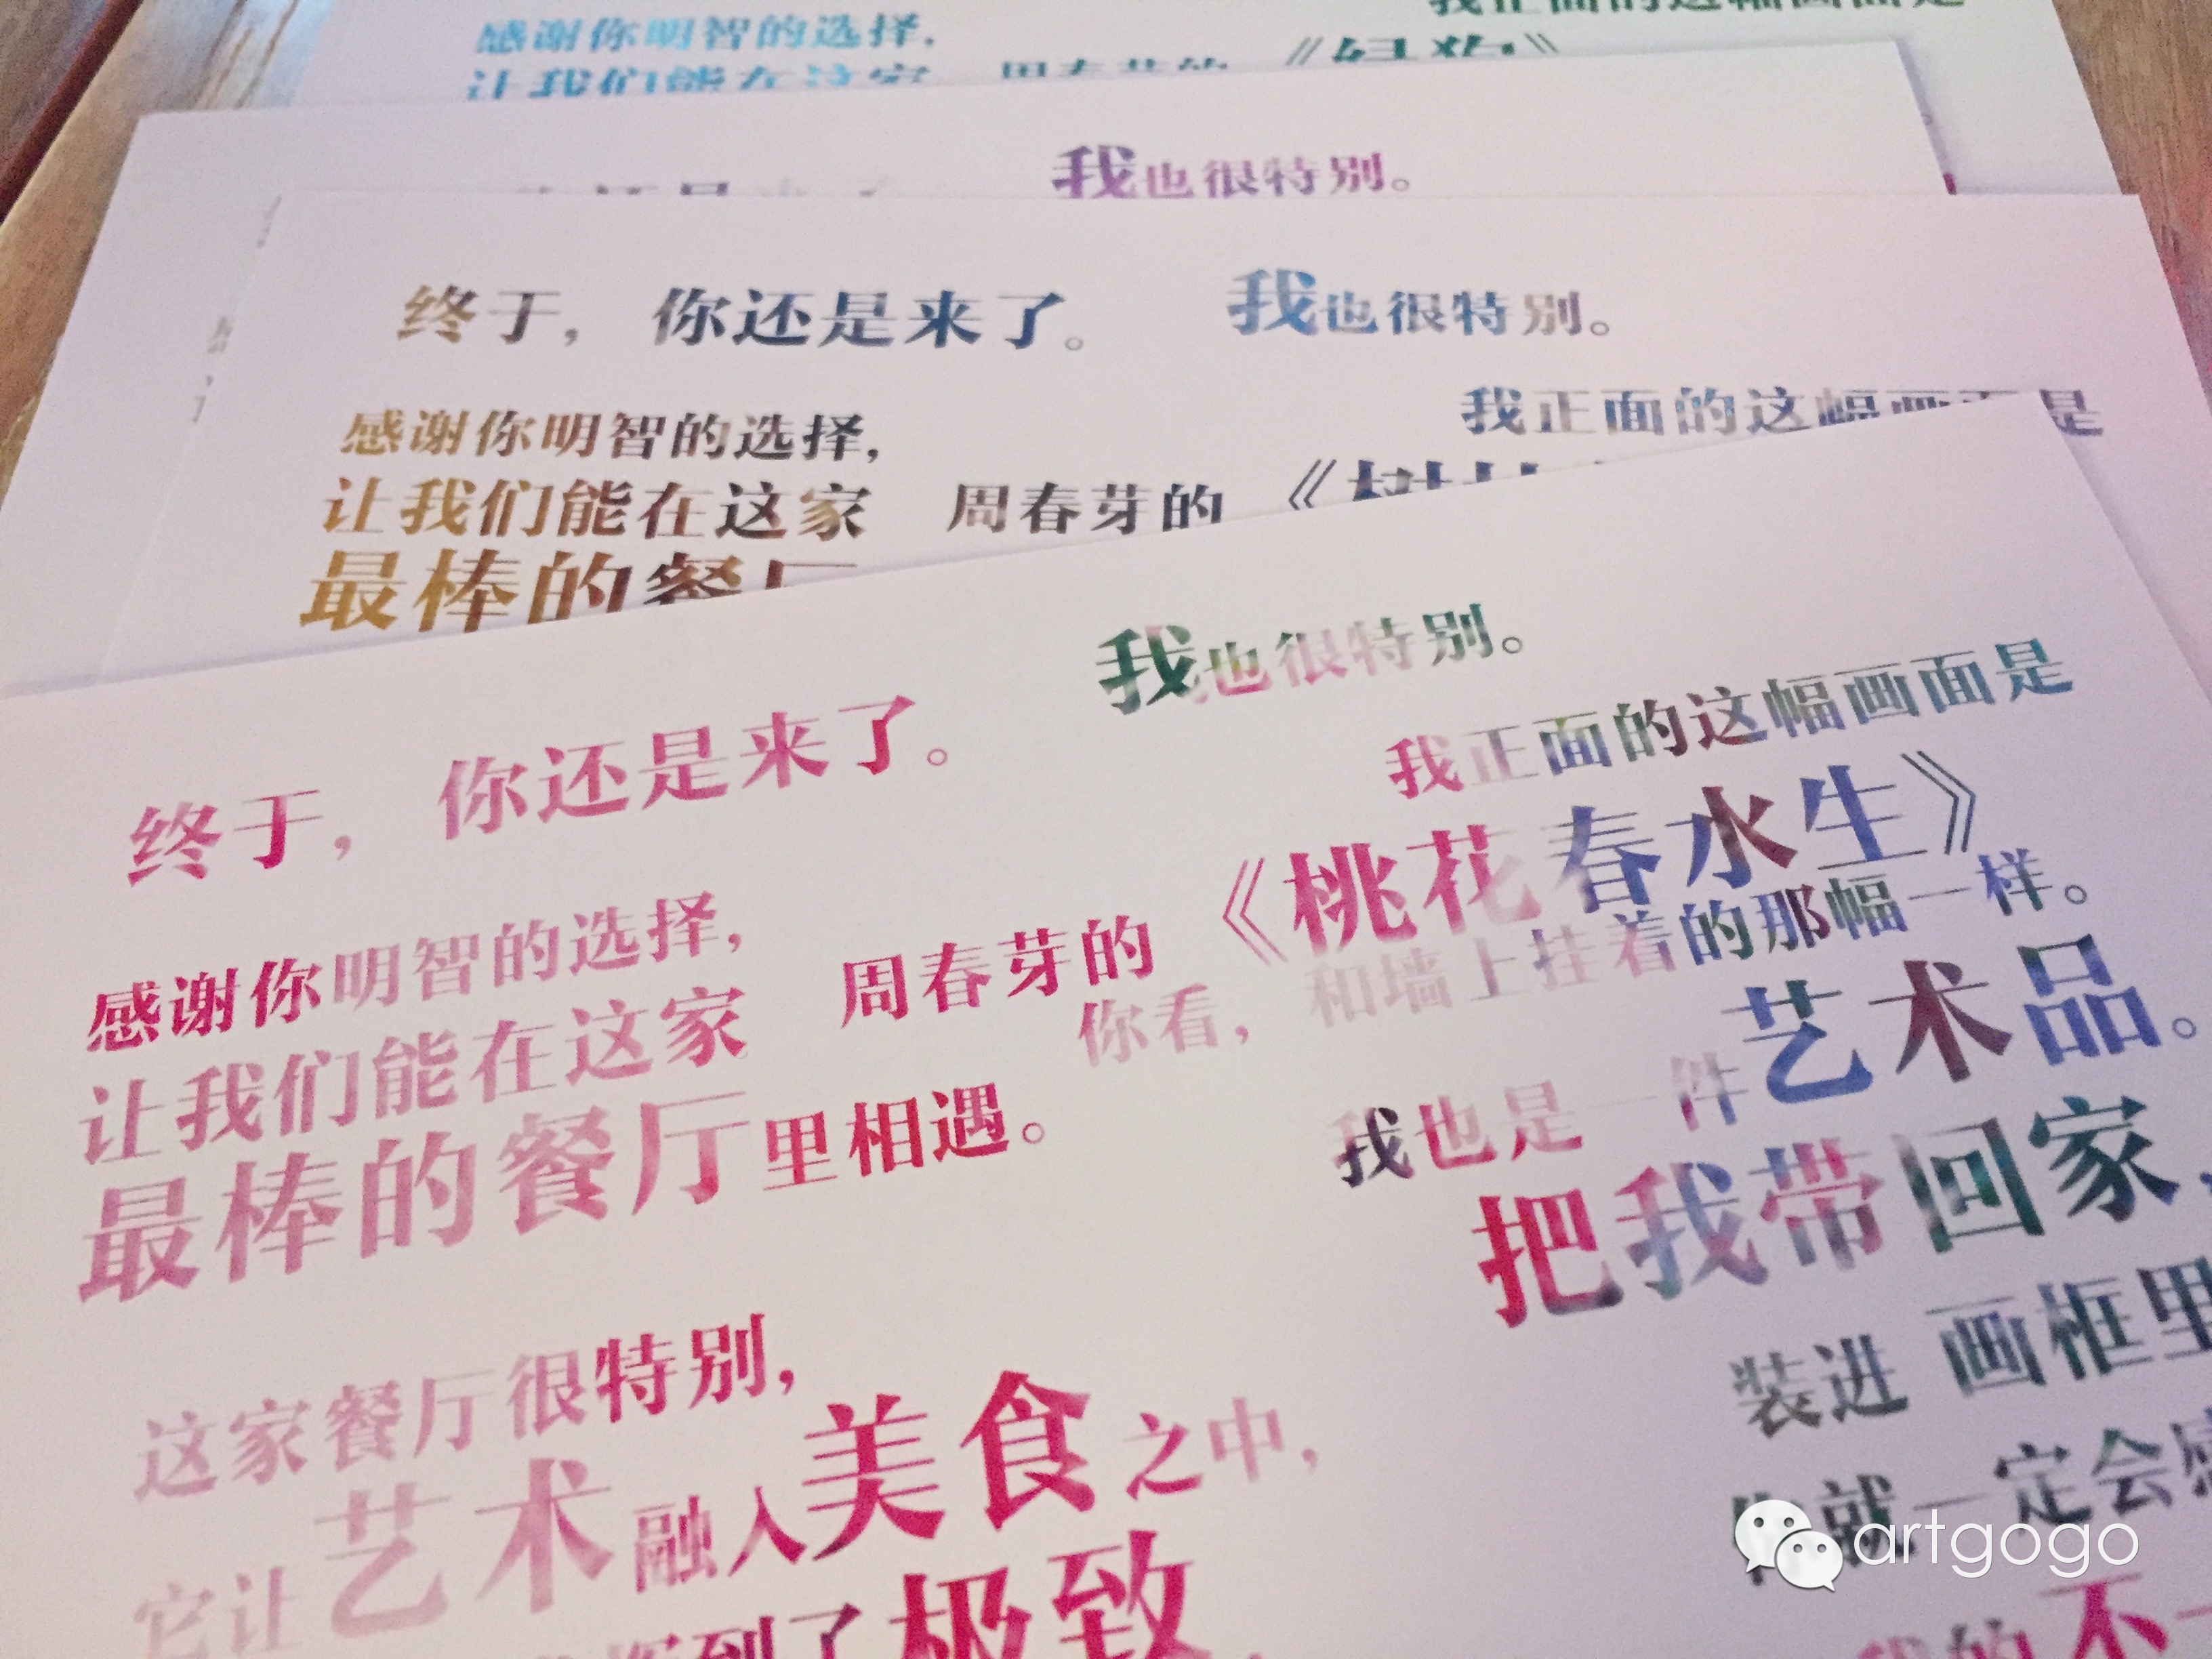 感谢你明智的选择，
让我们能在这家
周春芽的《绿狗》
我正面的这幅画面是
我也很特别。
终于，你还是来了。
我也很特别。
感谢你明智的选择，
让我们能在这家
最棒的餐厅
我正面的这幅画面是
周春芽的《树
终于，你还是来了。
感谢你明智的选择，
让我们能在这家
最棒的餐厅里相遇。
这家餐厅很特别，
它让艺术融入美食之中，
到了极致
我也很特别。
我正面的这幅画面是
周春芽的《桃花春水生》
你看，和墙上挂着的那幅一样。
我也是一件艺术品。
把我带回家，
装进 画框里
你就一定会感
我的不一
artgogo